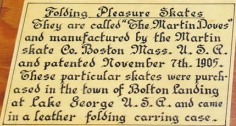 Folding Pleasure Skates
They are called "The Martin Doves"
and manufactured by the Martin
skate Co. Boston Mass. U.S.A.
and patented November 7th. 1905.
These particular skates were purch-
ased in the town of Bolton Landing
at Lake George U.S.A. and came
in a leather folding carring case.